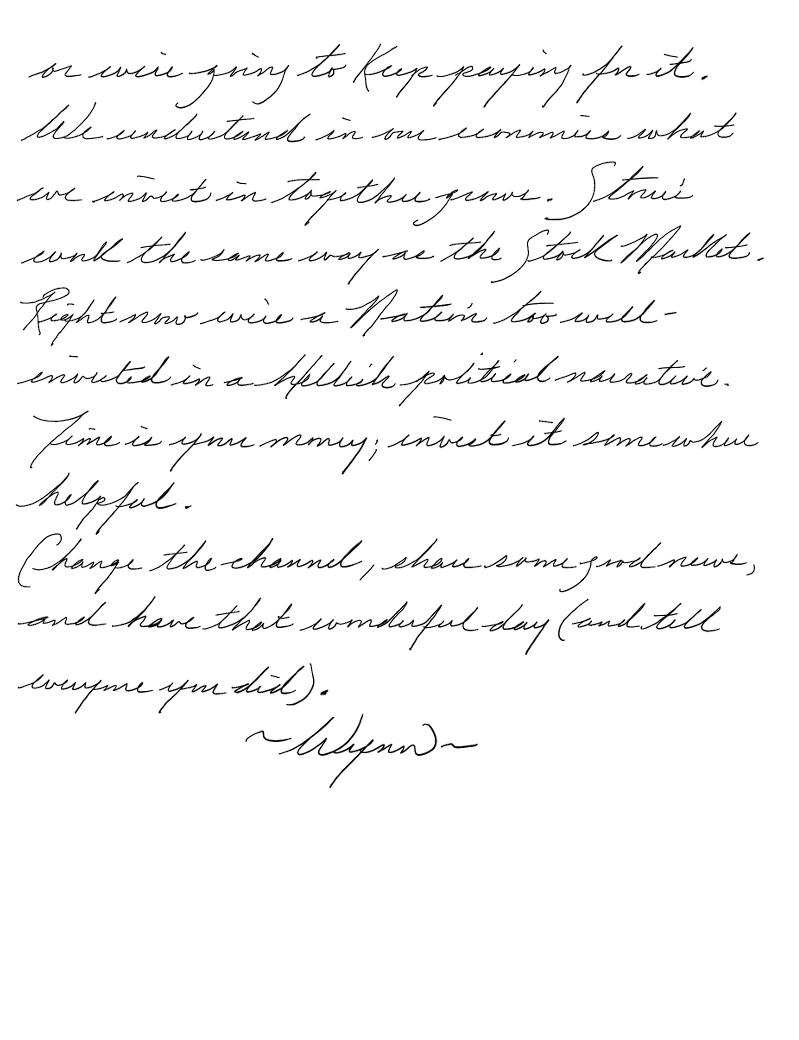 or we're going to Keep paying for it.
We understand in our economies what
we invest in together grows. Stories
work the same way as the Stock Market.
Right now we're a Nation too well-
invested in a hellish political narrative.
Time is your money; invest it somewhere
helpful.
Change the channel, share some good news,
and have that wonderful day (and tell
everyone you did).
~Wynn~